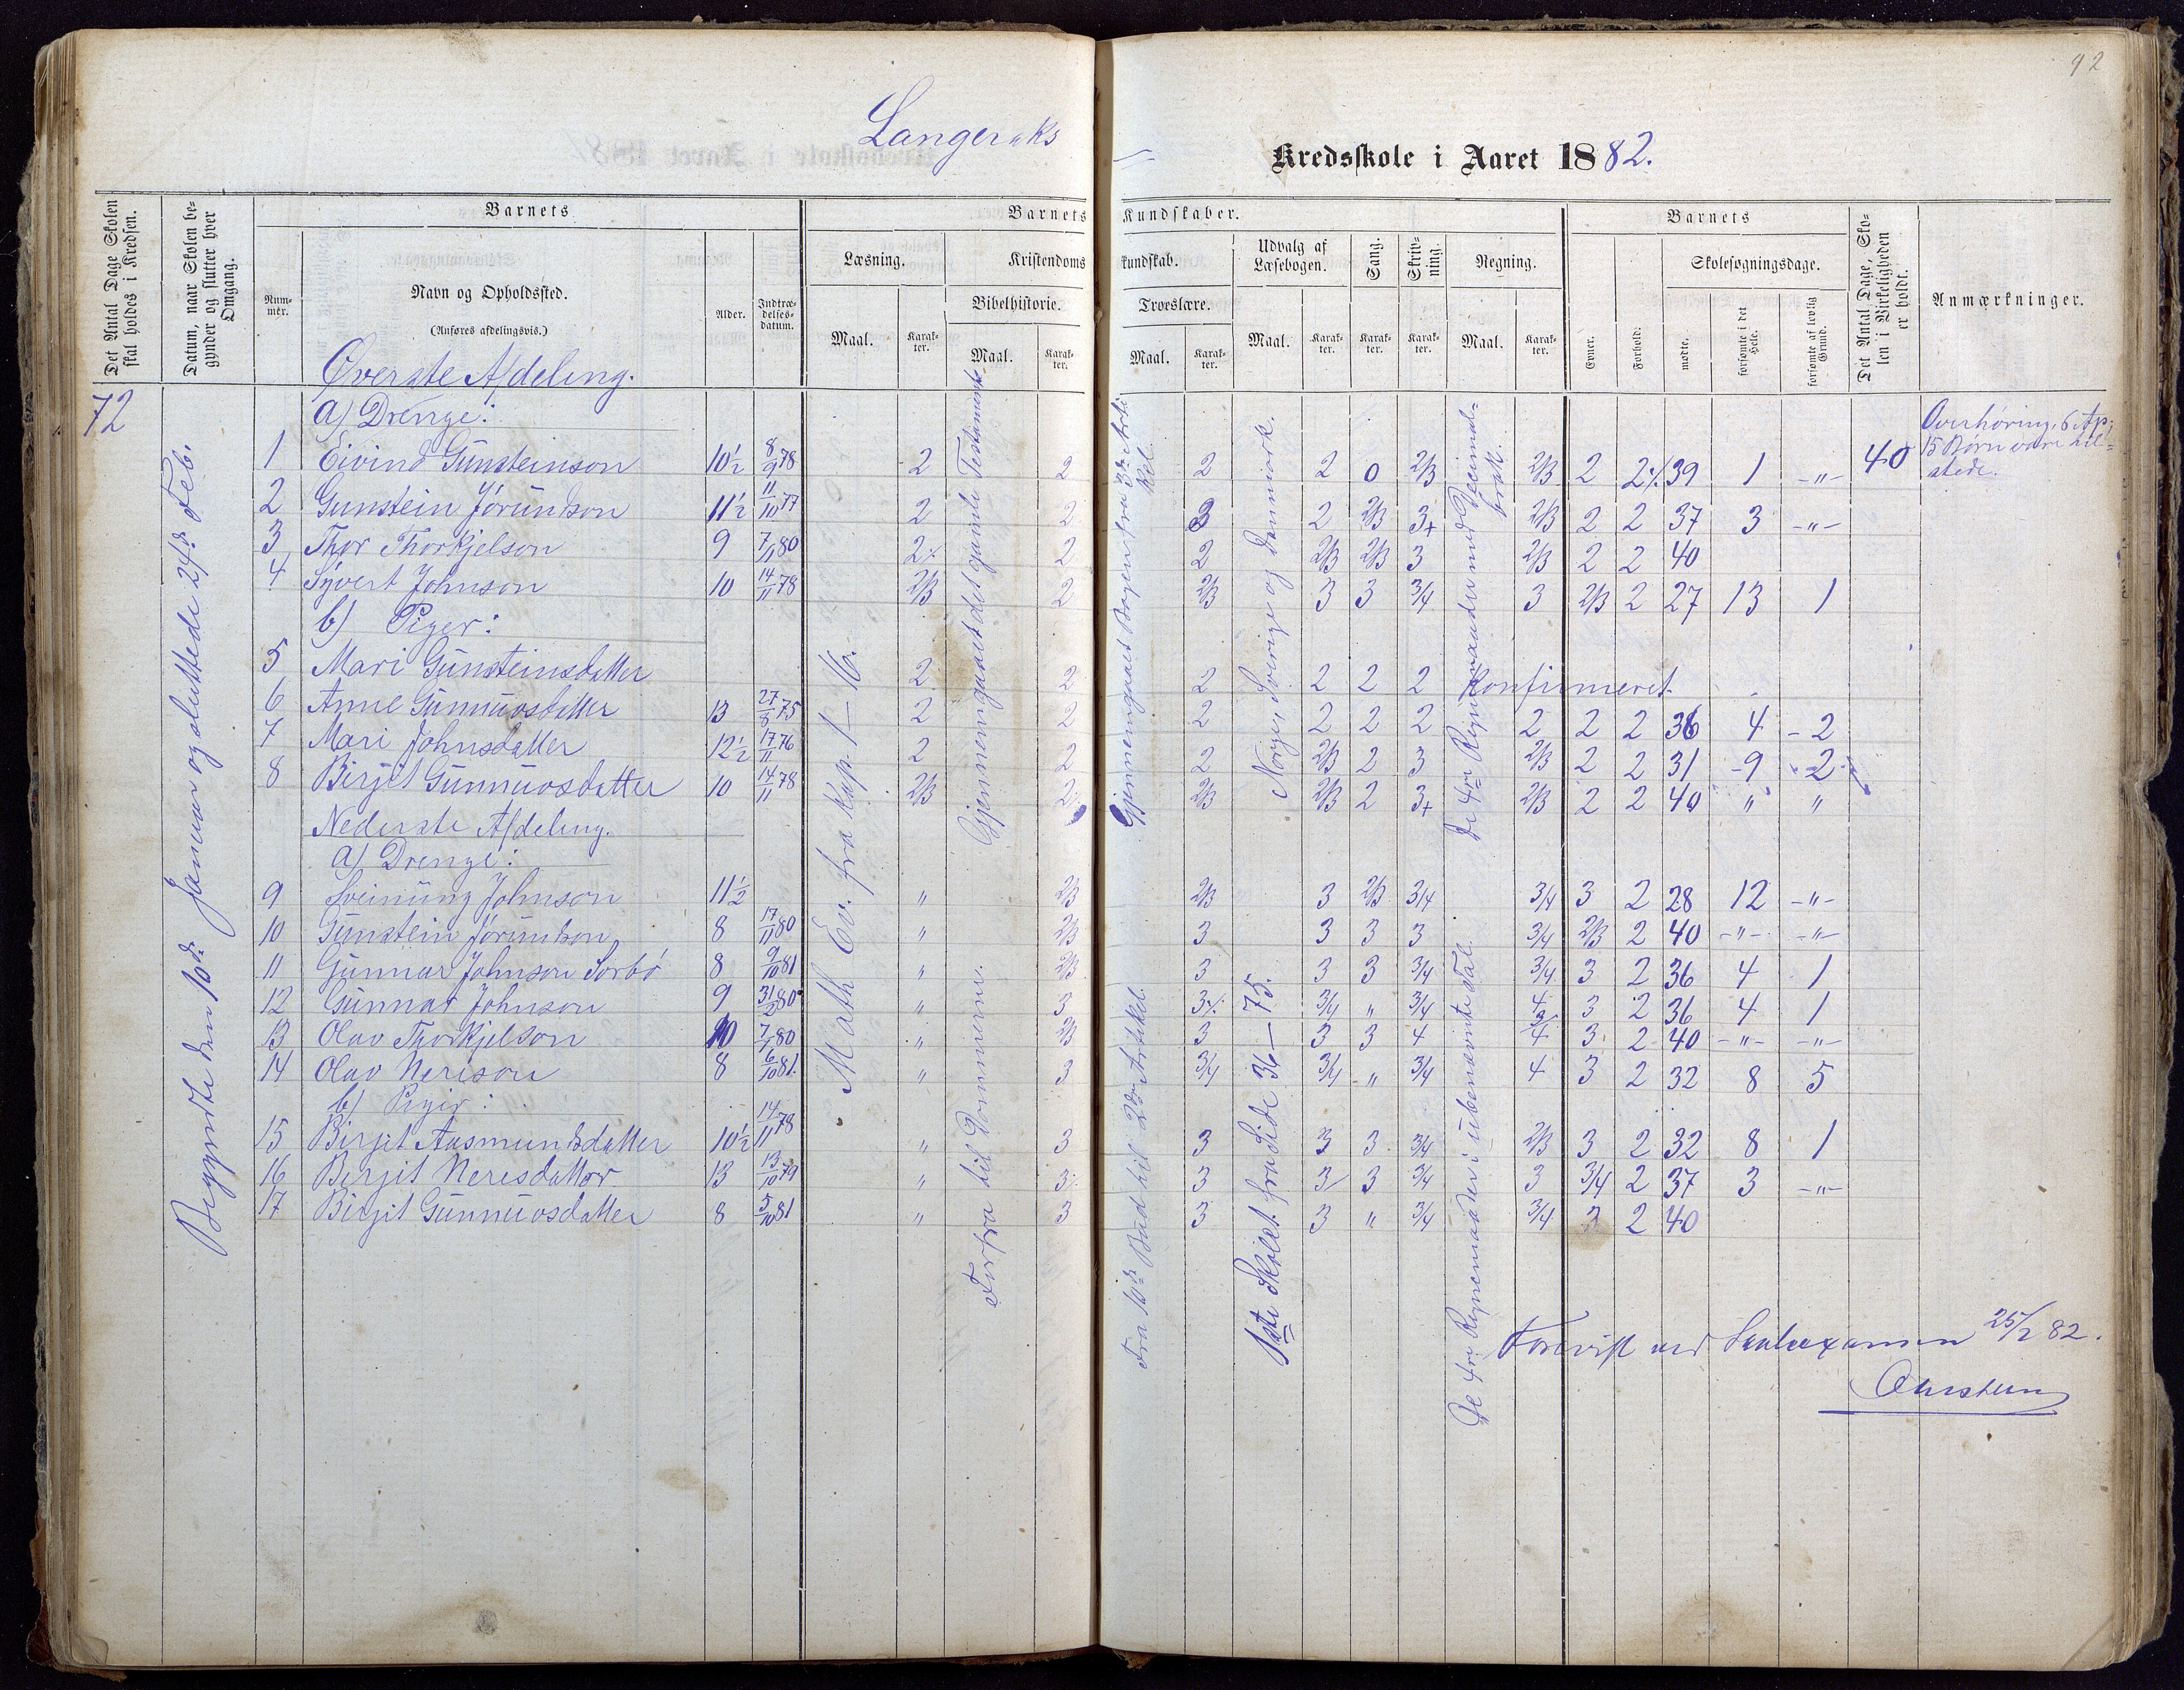 92
Langeraks Kredsskole i Aaret 1882.
Det Antal Dage Skolen skal holdes i Kredsen.
Datum, naar Skolen begynder og slutter hver Omgang.
Barnets
Nummer.
Navn og Opholdssted.
(Anføres afdelingsvis.)
Alder.
Indtrædelsesdatum.
Barnets Kundskaber.
Læsning.
Kristendomskundskab.
Bibelhistorie.
Troeslære.
Udvalg af Læsebogen.
Sang.
Skrivning.
Regning.
Maal.
Karakter.
Maal.
Karakter.
Maal.
Karakter.
Maal.
Karakter.
Karakter.
Karakter.
Maal.
Karakter.
Barnets
Evner.
Forhold.
Skolesøgningsdage.
mødte.
forsømte i det Hele.
forsømte af lovlig Grund.
Det Antal Dage, Skolen i Virkeligheden er holdt.
Anmærkninger.
72
Begyndte den 10de Januar og sluttede 24de Feb.
Øverste Afdeling.
a) Drenge:
1 Eivind Gunsteinson 10½ 8/9 78 2 2 2 2 0 2/3 2/3 2 2% 39 1 -"- 40
2 Gunstein Jørundson 11½ 11/10 77 2 2 3 2 2/3 3+ 2/3 2 2 37 3 -"-
3 Thor Thorkjelson 9 7/11 80 2% 2 2 2/3 2/3 3 2/3 2 2 40
4 Syvert Johnson 10 14/11 78 2/3 2 2/3 3 3 3/4 3 2/3 2 27 13 1
b) Piger:
5 Mari Gunsteinsdatter 2 2 2 2 2 2 Konfirmeret.
6 Anne Gunnuvsdatter 13 27/8 75 2 2 2 2 2 2 2 2 2 36 4 2
7 Mari Johnsdatter 12½ 17/11 76 2 2 2 2/3 2 3 2/3 2 2 31 9 2
8 Birgit Gunnuvsdatter 10 14/11 78 2/3 2 2/3 2/3 2 3+ 2/3 2 2 40 " "
Nederste Afdeling.
a) Drenge:
9 Sveinung Johnson 11½ " 2/3 2/3 3 2/3 3/4 3/4 3 2 28 12 -"-
10 Gunstein Jørundson 8 17/11 80 " 2/3 3 3 3 3 3/4 2/3 2 40 -"- -"-
11 Gunnar Johnson Sorbø 8 9/10 81 " 2/3 3 3 3 3/4 3/4 3 2 36 4 1
12 Gunnar Johnson 9 31/2 80 " 3 3% 3/4 " 3/4 4 3 2 36 4 1
13 Olav Thorkjelson 10 7/1 80 " 2/3 3 3 3 4 3/4 3 2 40 -"- -"-
14 Olav Nerison 8 6/10 81. " 3 3/4 3/4 " 3/4 4 3 2 32 8 5
b) Piger:
15 Birgit Aasmundsdatter 10½ 14/11 78 " 3 3 3 3 3/4 2/3 3 2 32 8 1
16 Birgit Nerisdatter 13 13/10 79 " 3 3 3 3 3/4 3 3/4 2 37 3 -"-
17 Birgit Gunnuvsdatter 8 5/10 81 " 3 3 3 " 3/4 3/4 3 2 40
Math Ev. fra Kap. 1-16.
Gjennemgaaet det gamle Testamente
Forfra til Dommerne.
Gjennemgaaet Bogen fra 3die Artikel.
Fra 10de Bud til 2den Artikel.
Norge, Sverige og Danmark.
1ste Skolet. fra Side 36-75.
De 4re Regnemaader med Decimalbrøk.
De 4re Regnemaader i ubenævnte Tal.
Overhøring. 6 Ap.
15 Børn vare tilstede.
Forevist ved Skoleexamen 25/2 82.